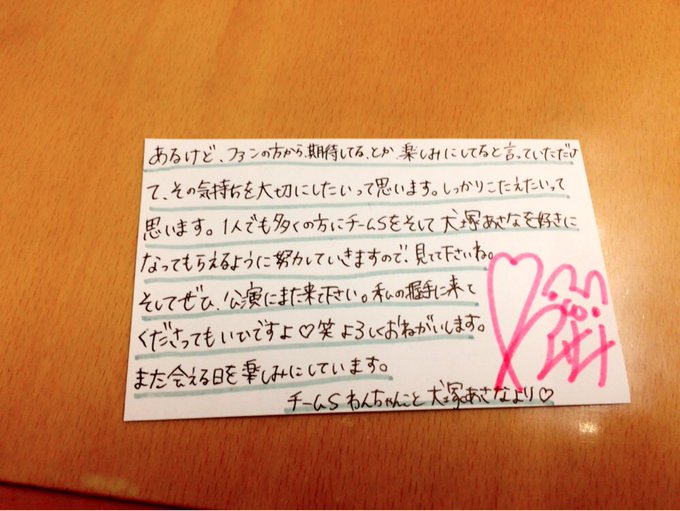 あるけど、ファンの方から、期待してる、とか、楽しみにしてると言っていただけ
て、その気持ちを大切にしたいって思います。しっかりこたえたいって
思います。1人でも多くの方にチームSをそして犬塚あさなを好きに
なってもらえるように努力していきますので、見て下さいね。
そしてぜひ、公演にまた来て下さい。私の握手に来て
くださってもいいですよ♡笑 よろしくおねがいします。
また会える日を楽しみにしています。
チームS わんちゃんこと 犬塚あさなより♡